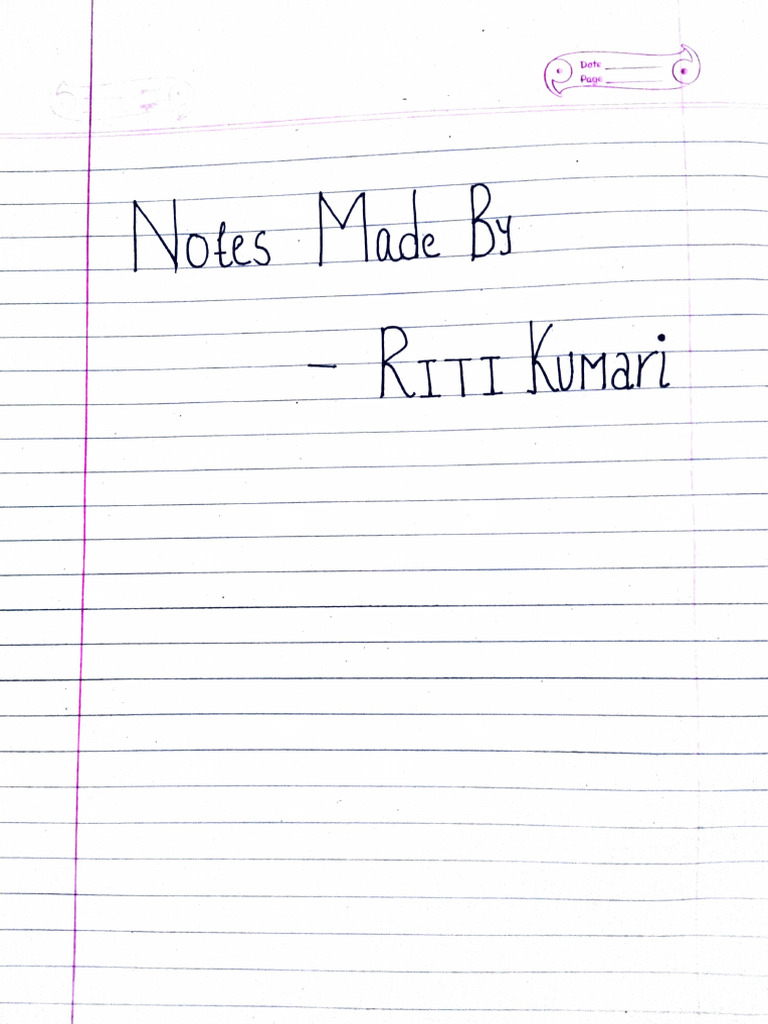 Date
Page
Notes Made By
- RITI Kumari